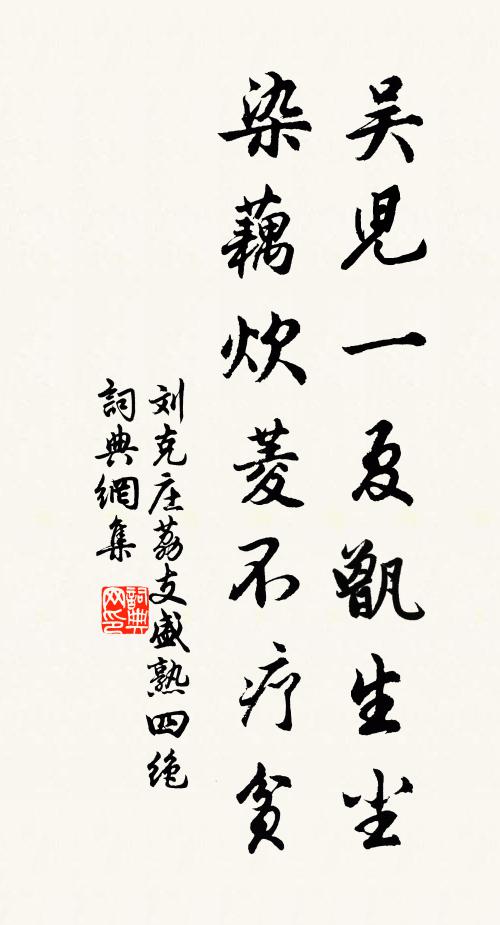 吴児一夏甑生尘
染藕炊菱不疗貧
刘克庄荔支盛熟四绝
詞典網集
詞典网印